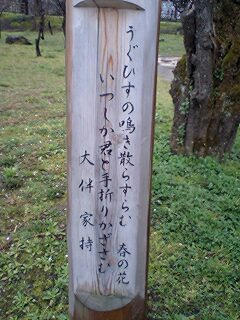 うぐひすの鳴き散らすらむ 春の花
いつしか君と手折りかざさむ
大伴家持